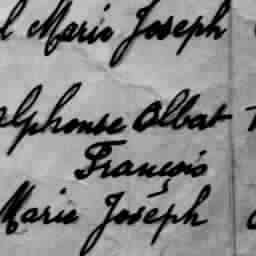 l Marie Joseph
alphonse Albert
François
Marie Joseph